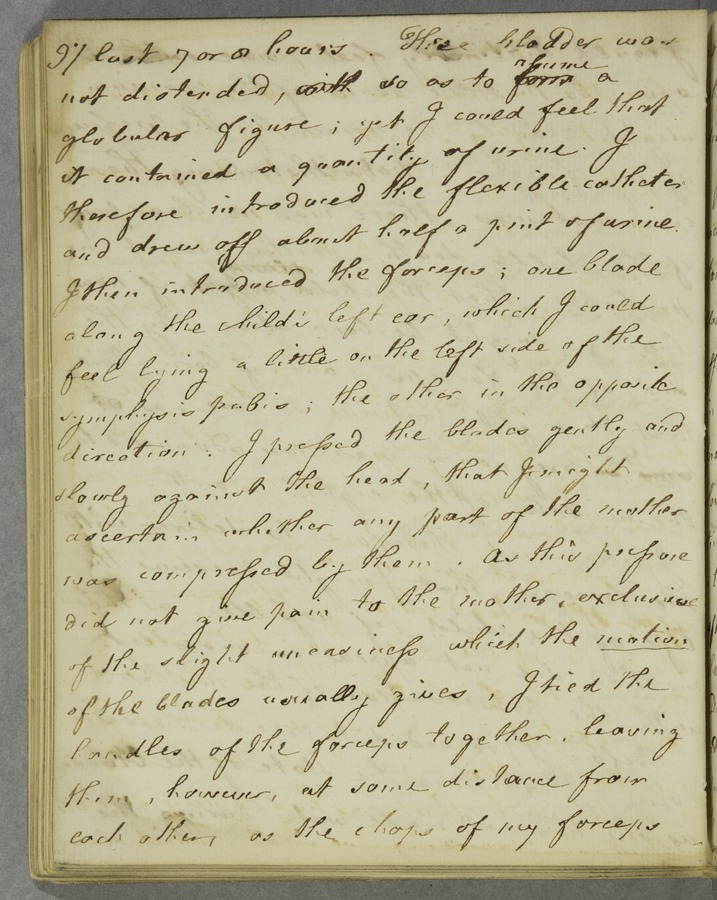 97 last 7 or 8 hours. The bladder was
not distended, with so as to form assume a
globular figure; yet I could feel that
it contained a quantity of urine. I
therefore introduced the flexible catheter
and drew off about half a pint of urine.
I then introduced the forceps; one blade
along the child's left ear, which I could
feel lying a little on the left side of the
symphysis pubis; the other in the opposite
direction. I pressed the blades gently and
slowly against the head, that I might
ascertain whether any part of the mother
was compressed by them. As this pressure
did not give pain to the mother, exclusive
of the slight uneasiness which the motion
of the blades usually gives, I tied the
handles of the forceps together, leaving
them, however, at some distance from
each other, as the chops of my forceps